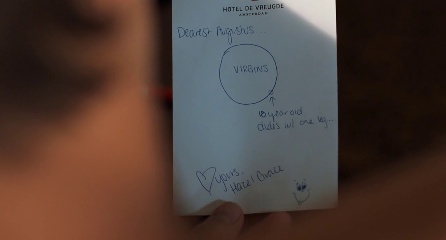 HOTEL DE VREUGDE
AMSTERDAM
Dearest Augustus...
VIRGINS
18 year old
dudes w/ one leg
yours,
Hazel Grace